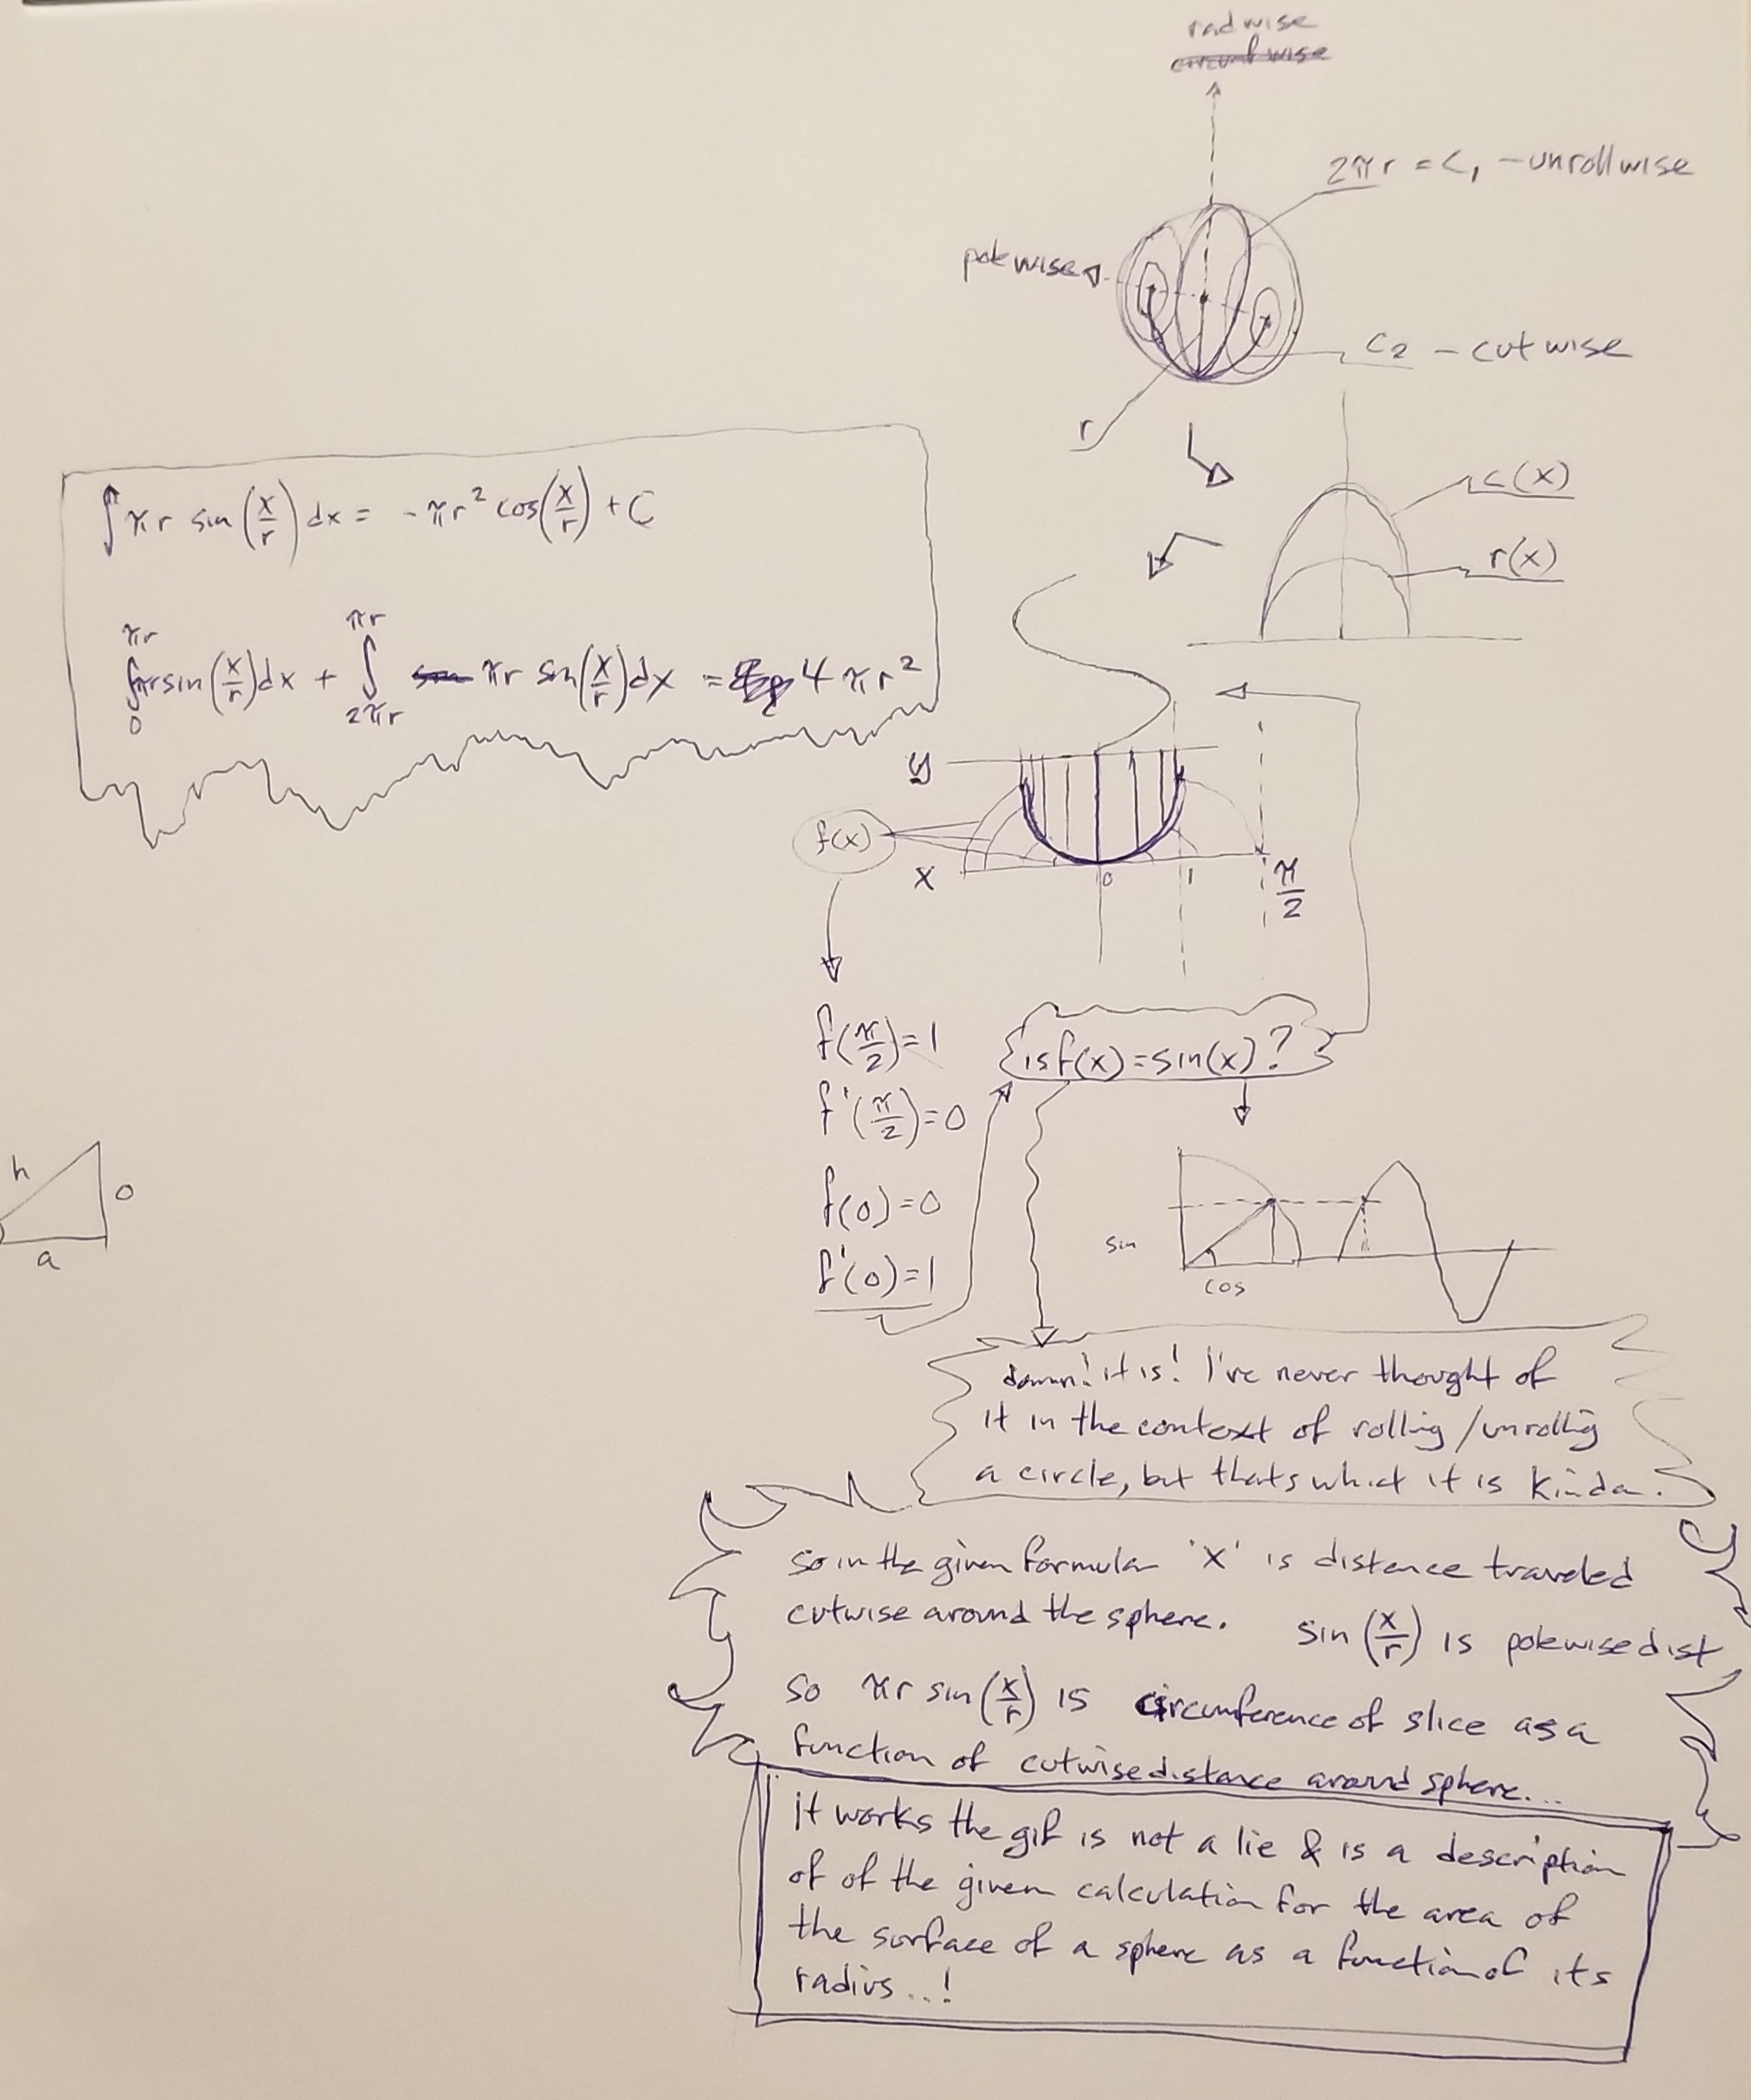 radwise
2πr = C₁ - unrollwise
polewise
C₂ - cutwise
r
c(x)
r(x)
∫ πr sin(x/r) dx = -πr² cos(x/r) + C
∫₀^πr πr sin(x/r) dx + ∫_2πr^πr πr sin(x/r) dx = 4πr²
y
f(x)
x
0
1
π/2
f(π/2)=1
f'(π/2)=0
f(0)=0
f'(0)=1
is f(x)=sin(x)?
h
o
a
sin
cos
damn! it is! I've never thought of
it in the context of rolling/unrolling
a circle, but thats what it is kinda.
so in the given formula 'x' is distance traveled
cutwise around the sphere. sin(x/r) is polewise dist
so πr sin(x/r) is circumference of slice as a
function of cutwise distance around sphere...
it works the gif is not a lie & is a description
of of the given calculation for the area of
the surface of a sphere as a function of its
radius..!